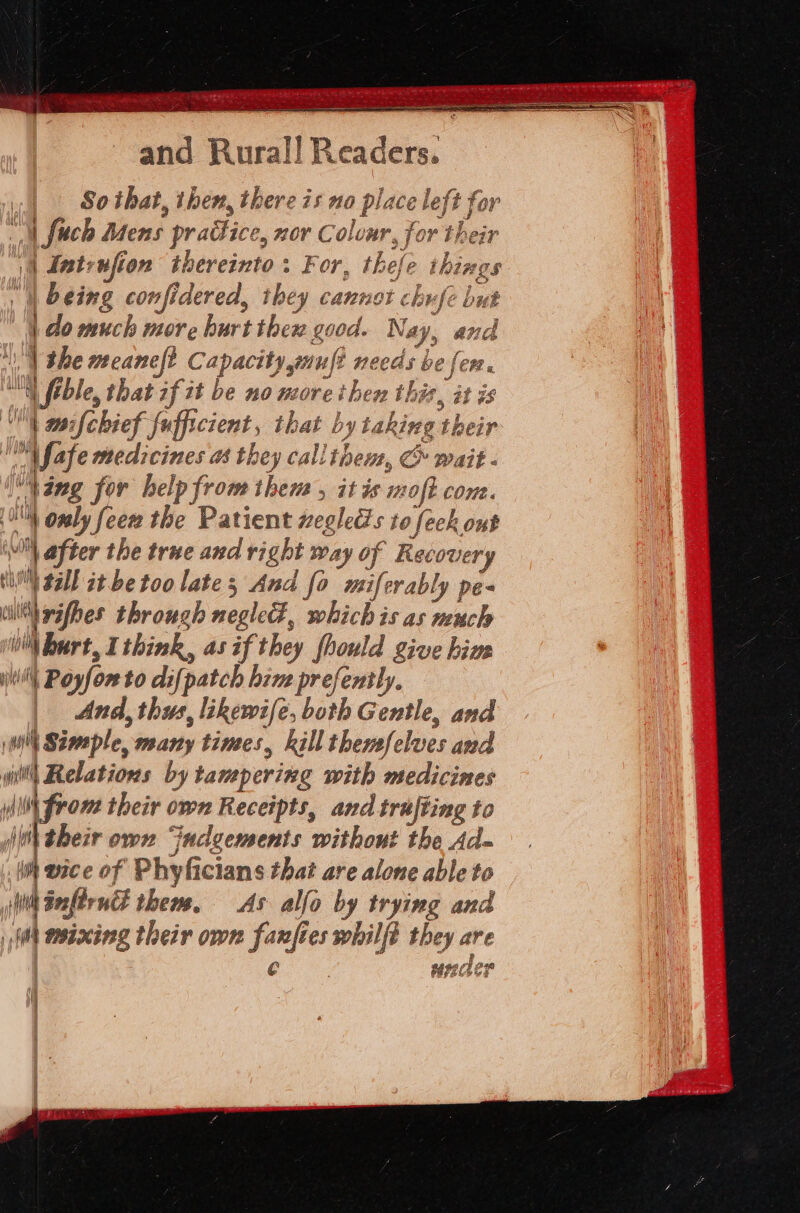 and Rurall Readers.
So that, then, there is no place left for
ſuch Mens practice, nor Colour, for their
Intruſion thereinto: For, theſe things
being conſidered, they cannot chuſe but
do much more hurt then good. Nay, and
the meaneſt Capacity muſt needs be ſen-
ſible, that if it be no more then this, it is
miſchief ſufficient, that by taking their
ſafe medicines as they call them, & wait-
ing for help from them, it is moſt com-
only ſeen the Patient neglects to ſeek out
after the true and right way of Recovery
till it be too late; And ſo miſerably pe-
riſhes through neglect, which is as much
hurt, I think, as if they ſhould give him
Poyſon to diſpatch him preſently.
And, thus, likewiſe, both Gentle, and
Simple, many times, kill themſelves and
Relations by tampering with medicines
from their own Receipts, and truſting to
their own Judgements without the Ad-
vice of Phyſicians that are alone able to
inſtruct them. As alſo by trying and
mixing their own fanſies whilſt they are
c under